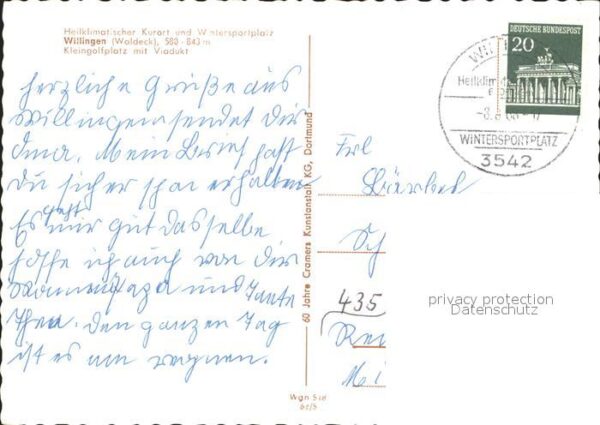 Heilklimatischer Kurort und Wintersportplatz
Willingen (Waldeck), 580 - 843 m
Kleingolfplatz mit Viadukt
herzliche Grüße aus
Willingen sendet dir
Oma. Mein Brief hast
Du sicher schon erhalten
Es geht
mir gut dasselbe
hoffe ich auch von dir
Mama Papa und Tante
Thea. den ganzen Tag
ist es am regnen.
60 Jahre Cramers Kunstanstalt KG, Dortmund
Wgn 518
61/5
DEUTSCHE BUNDESPOST
20
Heilklimat
WINTERSPORTPLATZ
3542
Frl
Bärbel
Sch
435
Rec
privacy protection
Datenschutz